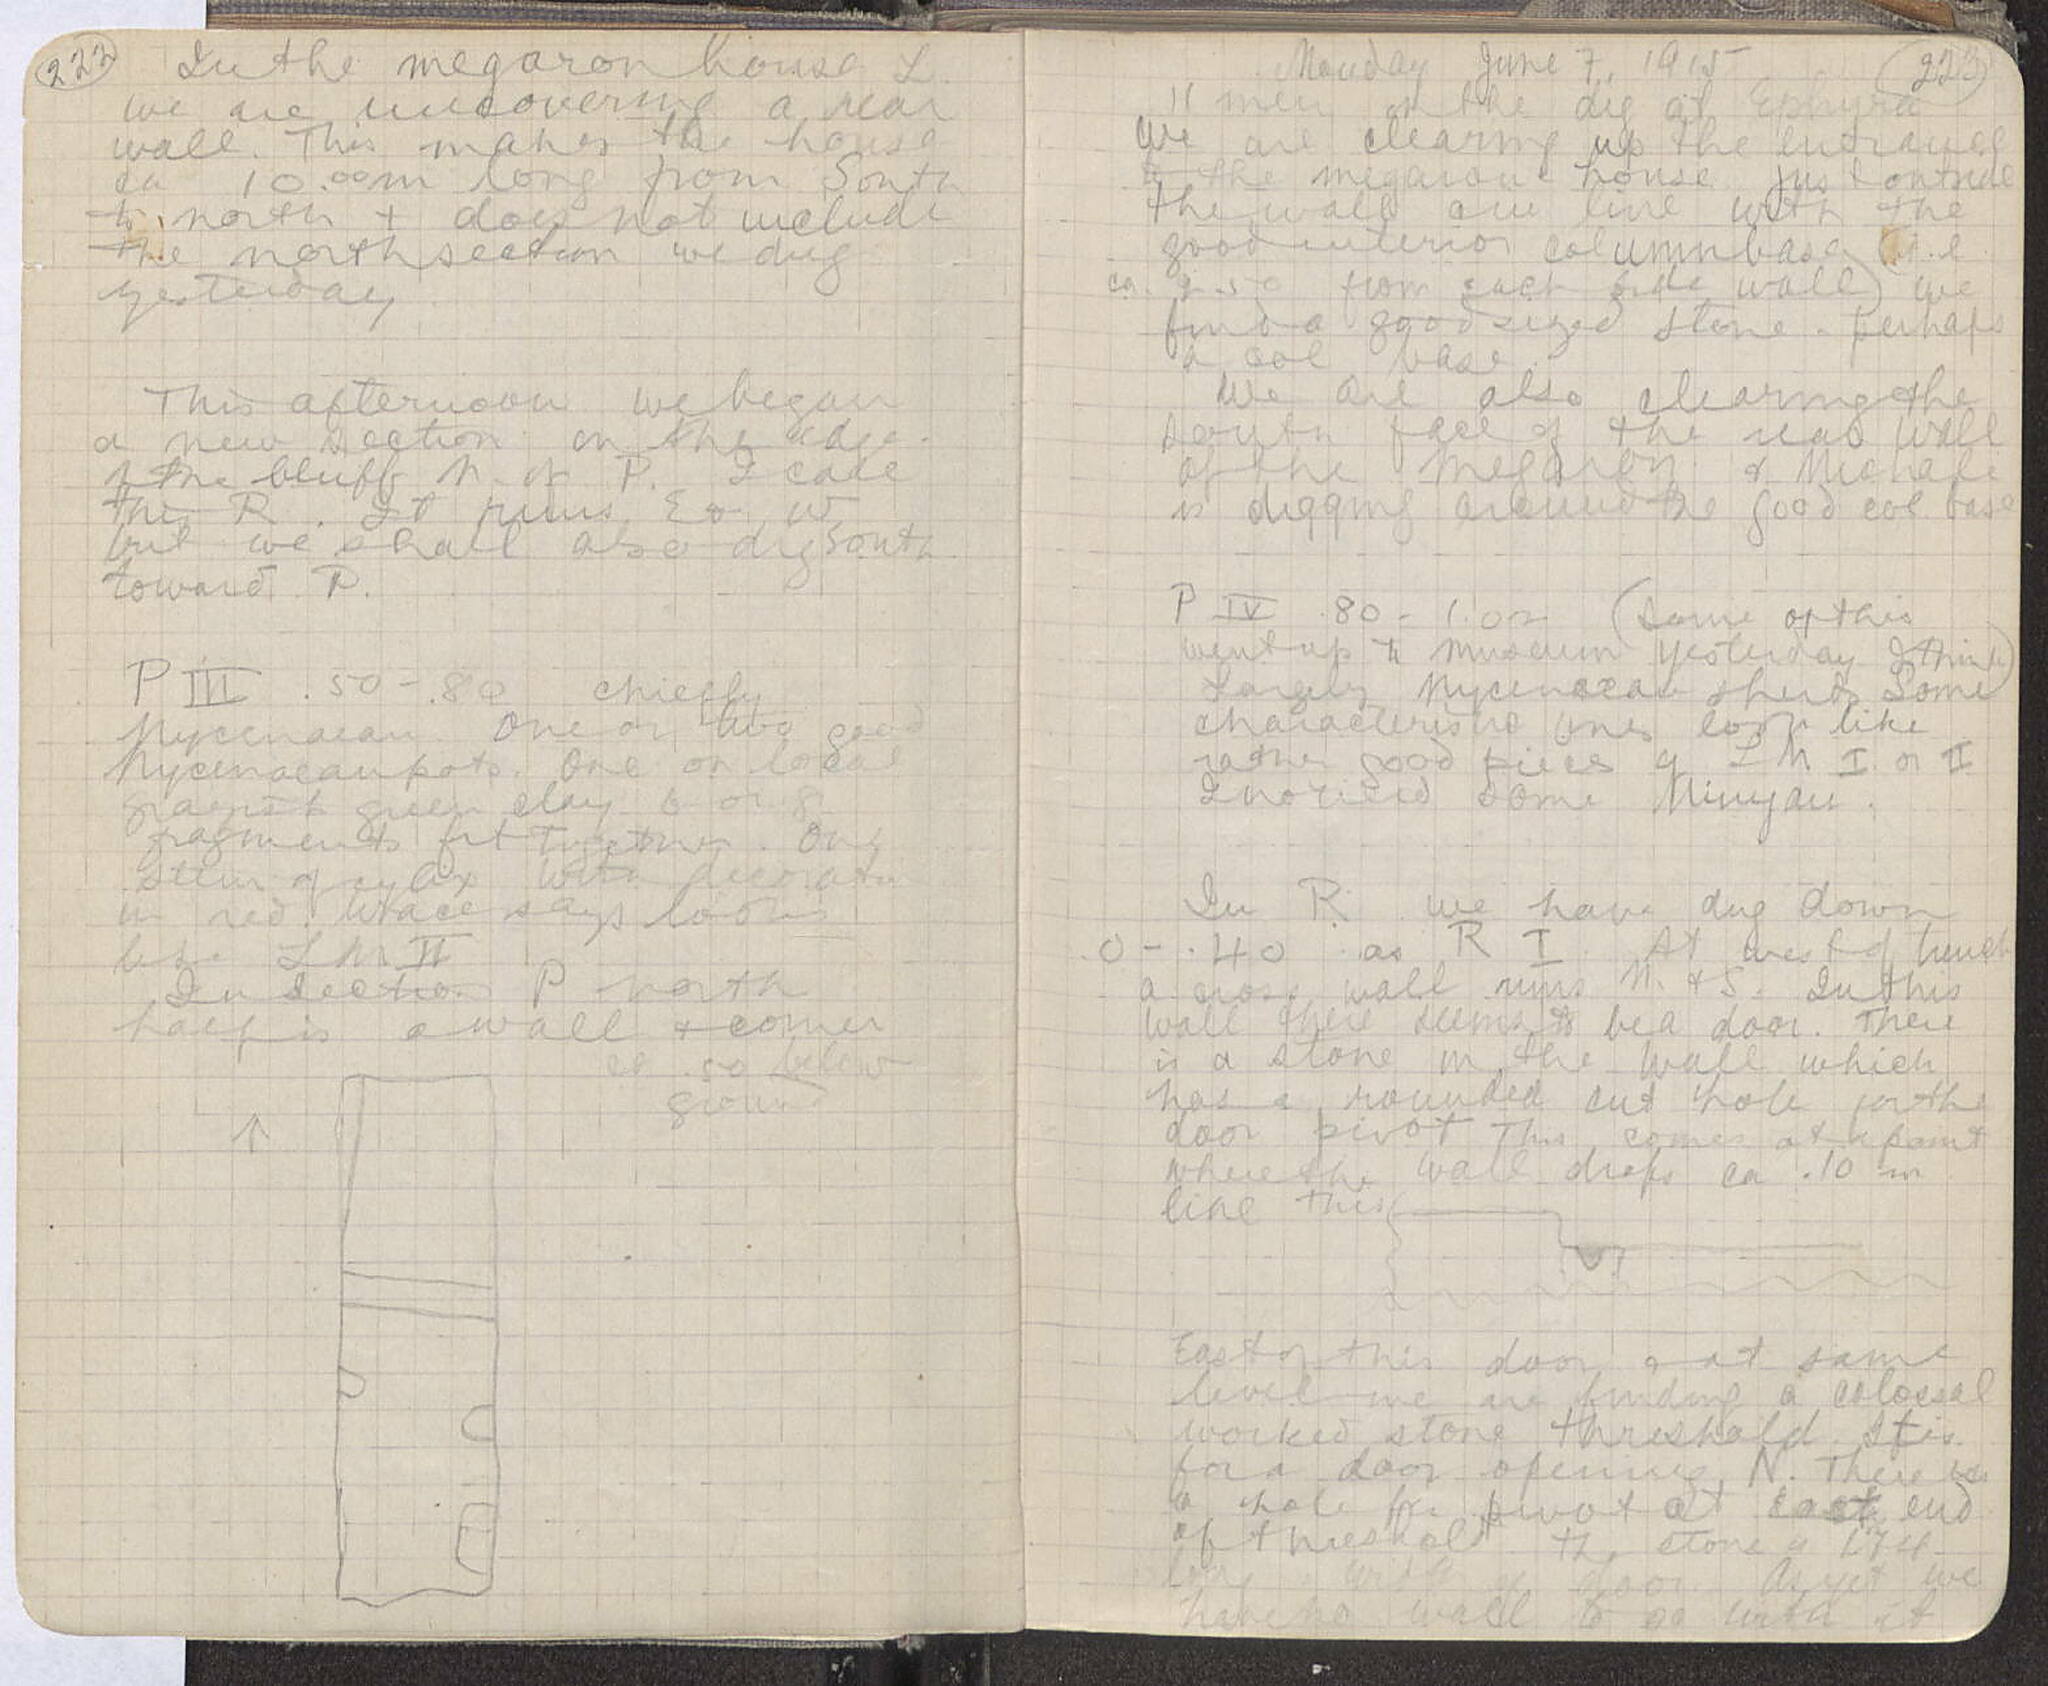 222
In the megaron house L
we are uncovering a rear
wall. This makes the house
ca 10.00m long from South
to north + does not include
the north section we dug
yesterday
This afternoon we began
a new section on the edge
of the bluff N. of P. I call
this R. It runs E & W
but we shall also dig South
toward P.
P III .50 - .80 chiefly
Mycenaean One or two good
Mycenaean pots. One on local
grayish green clay 6 or 8
fragments fit together. One
stem of cylix with decoration
in red. Wace says looks
like LM II
In Section P north
half is a wall + corner
ca .50 below
ground
Monday June 7, 1915
223
11 men on the dig at Ephyra
We are clearing up the entrance
to the megaron house just outside
the wall and line with the
good interior column base (i.e
ca. 2.50 from each side wall) we
find a good sized stone - perhaps
a col base.
We are also clearing the
south face of the rear wall
of the Megaron & Michale
is digging around the good col base
P IV .80 - 1.02 (Some of this
went up to museum yesterday I think)
Largely Mycenaean sherds Some
characteristic ones look like
rather good pieces of LM I or II
I noticed some Minyan.
In R we have dug down
0 - .40 as R I. At west of trench
a cross wall runs N. + S. In this
wall there seems to be a door. There
is a stone in the wall which
has a rounded cut hole for the
door pivot This comes at a point
where the wall drops ca .10 m
like this
East of this door & at same
level we are finding a colossal
worked stone threshold. It is
for a door opening N. There is
a hole for pivot at East end
of threshold. The stone is 1.74
long width of door. As yet we
have no wall to go with it